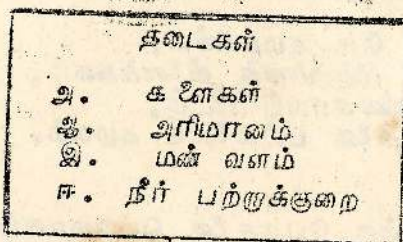 தடைகள்
அ. களைகள்
ஆ. அரிமானம்
இ. மண் வளம்
ஈ. நீர் பற்றுக்குறை